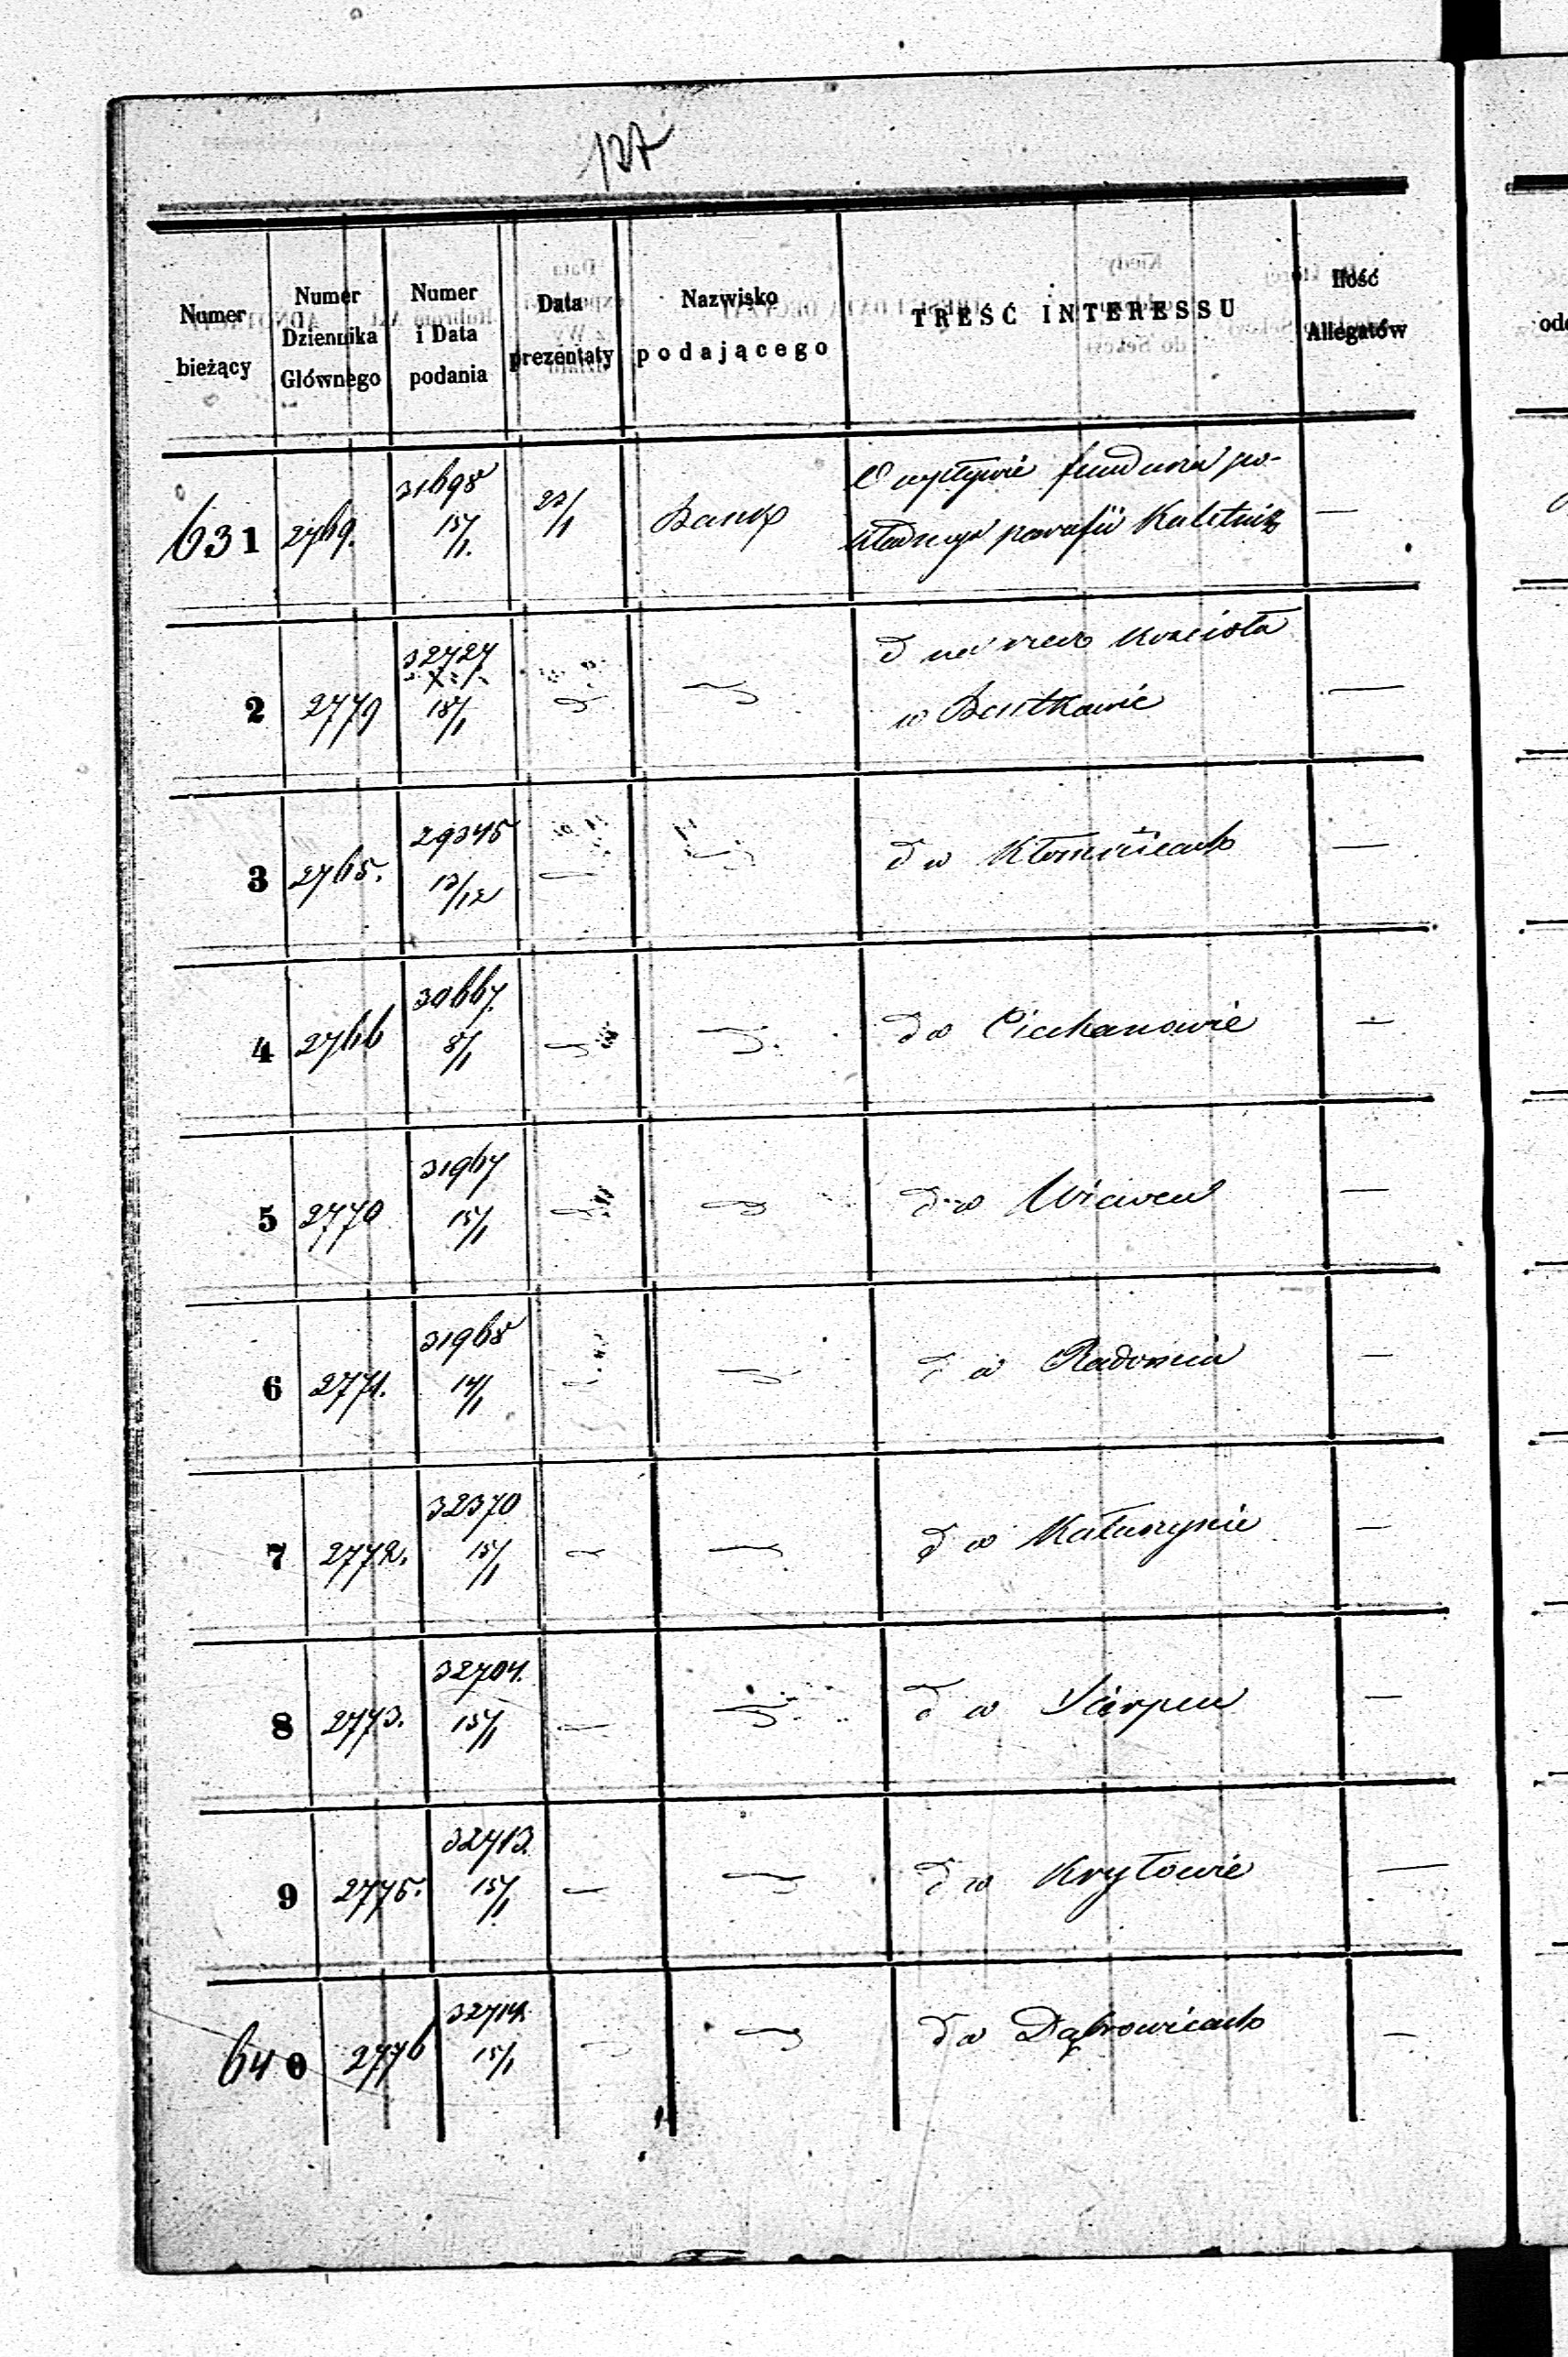 127
Numer bieżący
Numer Dziennika Głównego
Numer i Data podania
Data prezentaty
Nazwisko podającego
TREŚĆ INTERESSU
Ilość Allegatów
631 2769. 31698 15/1. 23/1 Bank O wpływie fundusza po-
kładnego parafii Kaletnik —
2 2779 32727 18/1 d na rzecz Kościoła
w —
3 2765. 29345 13/12 — d w —
4 2766 30667. 8/1 d w Ciechanowie —
5 2770 31967 15/1 d w —
6 2771. 31968 14/1 d w Radomiu —
7 2772. 32370 15/1 — — d w Kałuszynie —
8 2773. 32704. 15/1 — d w Sierpcu —
9 2775. 32713. 15/1 — — d w Kryłowie —
640 2776 32714. 15/1 d w Dąbrowicach —